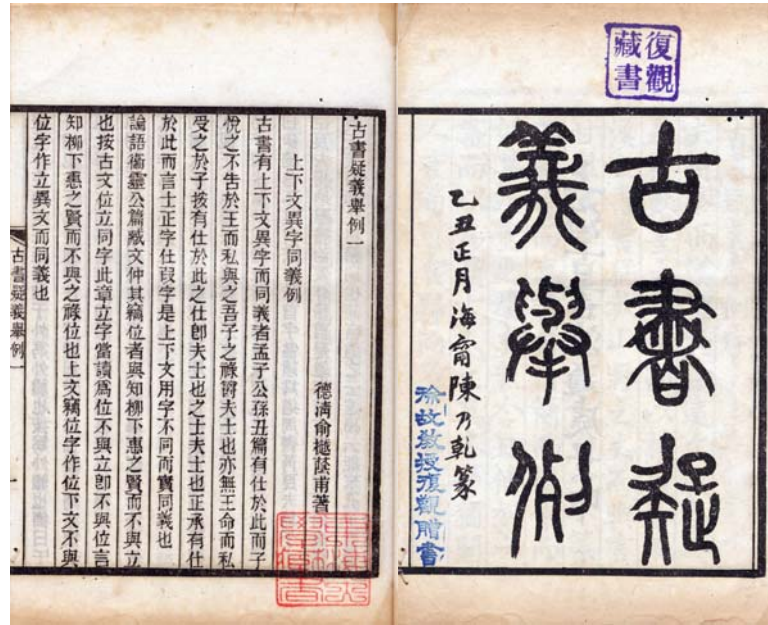 復觀
藏書
古書疑
義舉例
乙丑正月海甯陳乃乾篆
徐故教授復觀贈書
古書疑義舉例一
德清俞樾蔭甫著
上下文異字同義例
古書有上下文異字而同義者孟子公孫丑篇有仕於此而子
悅之不告於王而私與之吾子之祿爵夫士也亦無王命而私
受之於子按有仕於此之仕卽夫士也之士夫士也正承有仕
於此而言士正字仕叚字是上下文用字不同而實同義也
論語衞靈公篇臧文仲其竊位者與知柳下惠之賢而不與立
也按古文位立同字此章立字當讀爲位不與立卽不與位言
知柳下惠之賢而不與之祿位也上文竊位字作位下文不與
位字作立異文而同義也
古書疑義舉例一
一